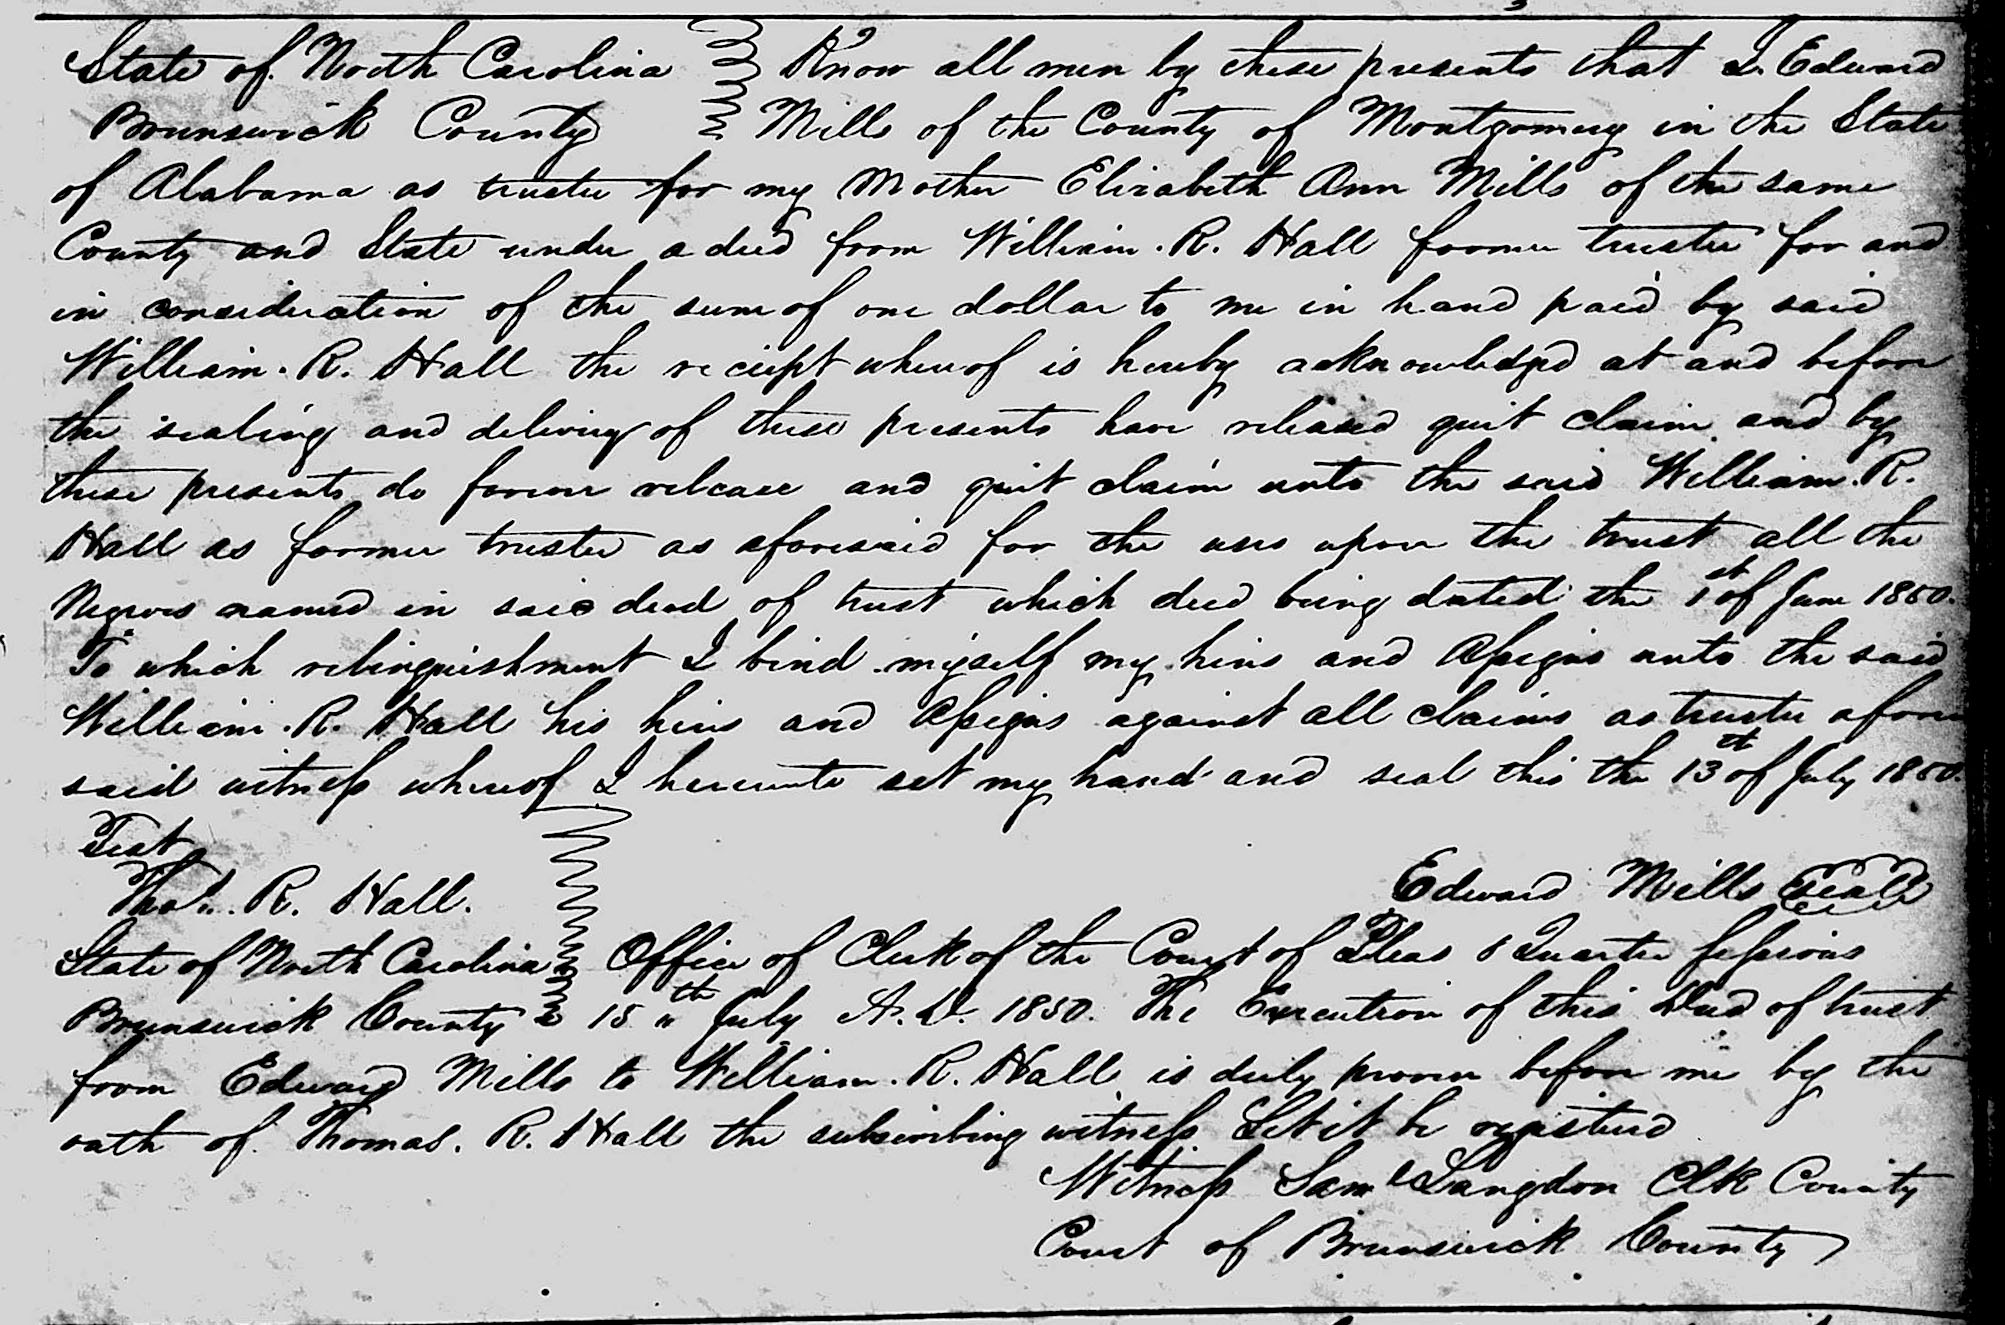 State of North Carolina Know all men by these presents that I Edward
Brunswick County Mills of the County of Montgomery in the State
of Alabama as trustee for my Mother Elizabeth Ann Mills of the same
County and State under a deed from William. R. Hall former trustee for and
in consideration of the sum of one dollar to me in hand paid by said
William. R. Hall the reciept whereof is hereby acknowledged at and before
the sealing and delivery of these presents have released quit claim and by
these presents do forever release and quit claim unto the said William. R.
Hall as former trustee as aforesaid for the uses upon the trust all the
Negroes named in said deed of trust which deed being dated the 1st of June 1850.
To which relinquishment I bind myself my heirs and Assigns unto the said
William. R. Hall his heirs and Assigns against all claims as trustee afore
said witness whereof I hereunto set my hand and seal this the 13th of July 1850.
Test
Thos. R. Hall. Edward Mills Seal
State of North Carolina Office of Clerk of the Court of Pleas & Quarter Sessions
Brunswick County 15th July A.D. 1850. The Execution of this Deed of trust
from Edward Mills to William. R. Hall is duly proven before me by the
oath of Thomas. R. Hall the subscribing witness Let it be registered
Witness Saml Langdon Clk County
Court of Brunswick County